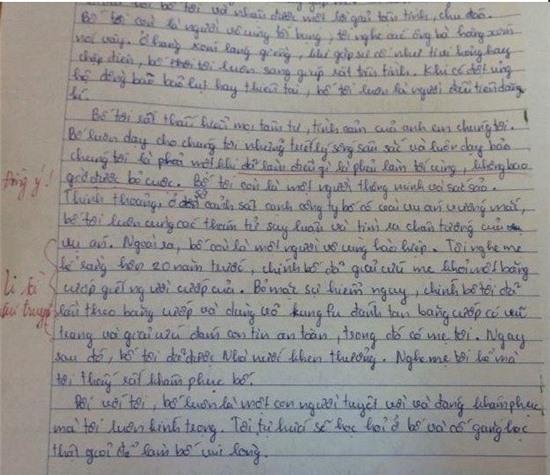 với bố tôi và nhận được một lời giải tận tình, chu đáo.
Bố tôi còn là người vô cùng tốt bụng, tôi nghe các ông bà hàng xóm
nói vậy. Ở hàng xóm láng giềng, khi gặp sự cố như tivi hỏng hay
chập điện, bố tôi luôn sang giúp rất tận tình. Khi có đợt ủng
hộ đồng bào bão lụt hay thiên tai, bố tôi luôn là người đầu tiên đăng
kí.
Bố tôi rất thấu hiểu mọi tâm tư, tình cảm của anh em chúng tôi.
Bố luôn dạy cho chúng tôi những triết lý sống sâu sắc và luôn dạy bảo
chúng tôi là phải một khi đã làm điều gì là phải làm tới cùng, không bao
Đồng ý!
giờ được bỏ cuộc. Bố tôi còn là một người thông minh và sát sao.
Thỉnh thoảng, ở đồn cảnh sát cạnh công ty bố có vài vụ án vướng mắc,
bố tôi luôn cùng các thám tử suy luận và tìm ra chân tướng của
vụ án. Ngoài ra, bố còn là một người vô cùng hào hiệp. Tôi nghe mẹ
kể rằng hơn 20 năm trước, chính bố đã giải cứu mẹ khỏi một băng
cướp giết người cướp của. Bỏ mặc sự hiểm nguy, chính bố tôi đã
lần theo băng cướp và dùng võ kungfu đánh tan băng cướp có vũ
trang và giải cứu đám con tin an toàn, trong đó có mẹ tôi. Ngay
sau đó, bố tôi đã được Nhà nước khen thưởng. Nghe mẹ tôi kể mà
tôi thấy rất khâm phục bố.
Đối với tôi, bố luôn là một con người tuyệt vời và đáng khâm phục
mà tôi luôn kính trọng. Tôi tự hứa sẽ học hỏi ở bố và cố gắng học
thật giỏi để làm bố vui lòng.